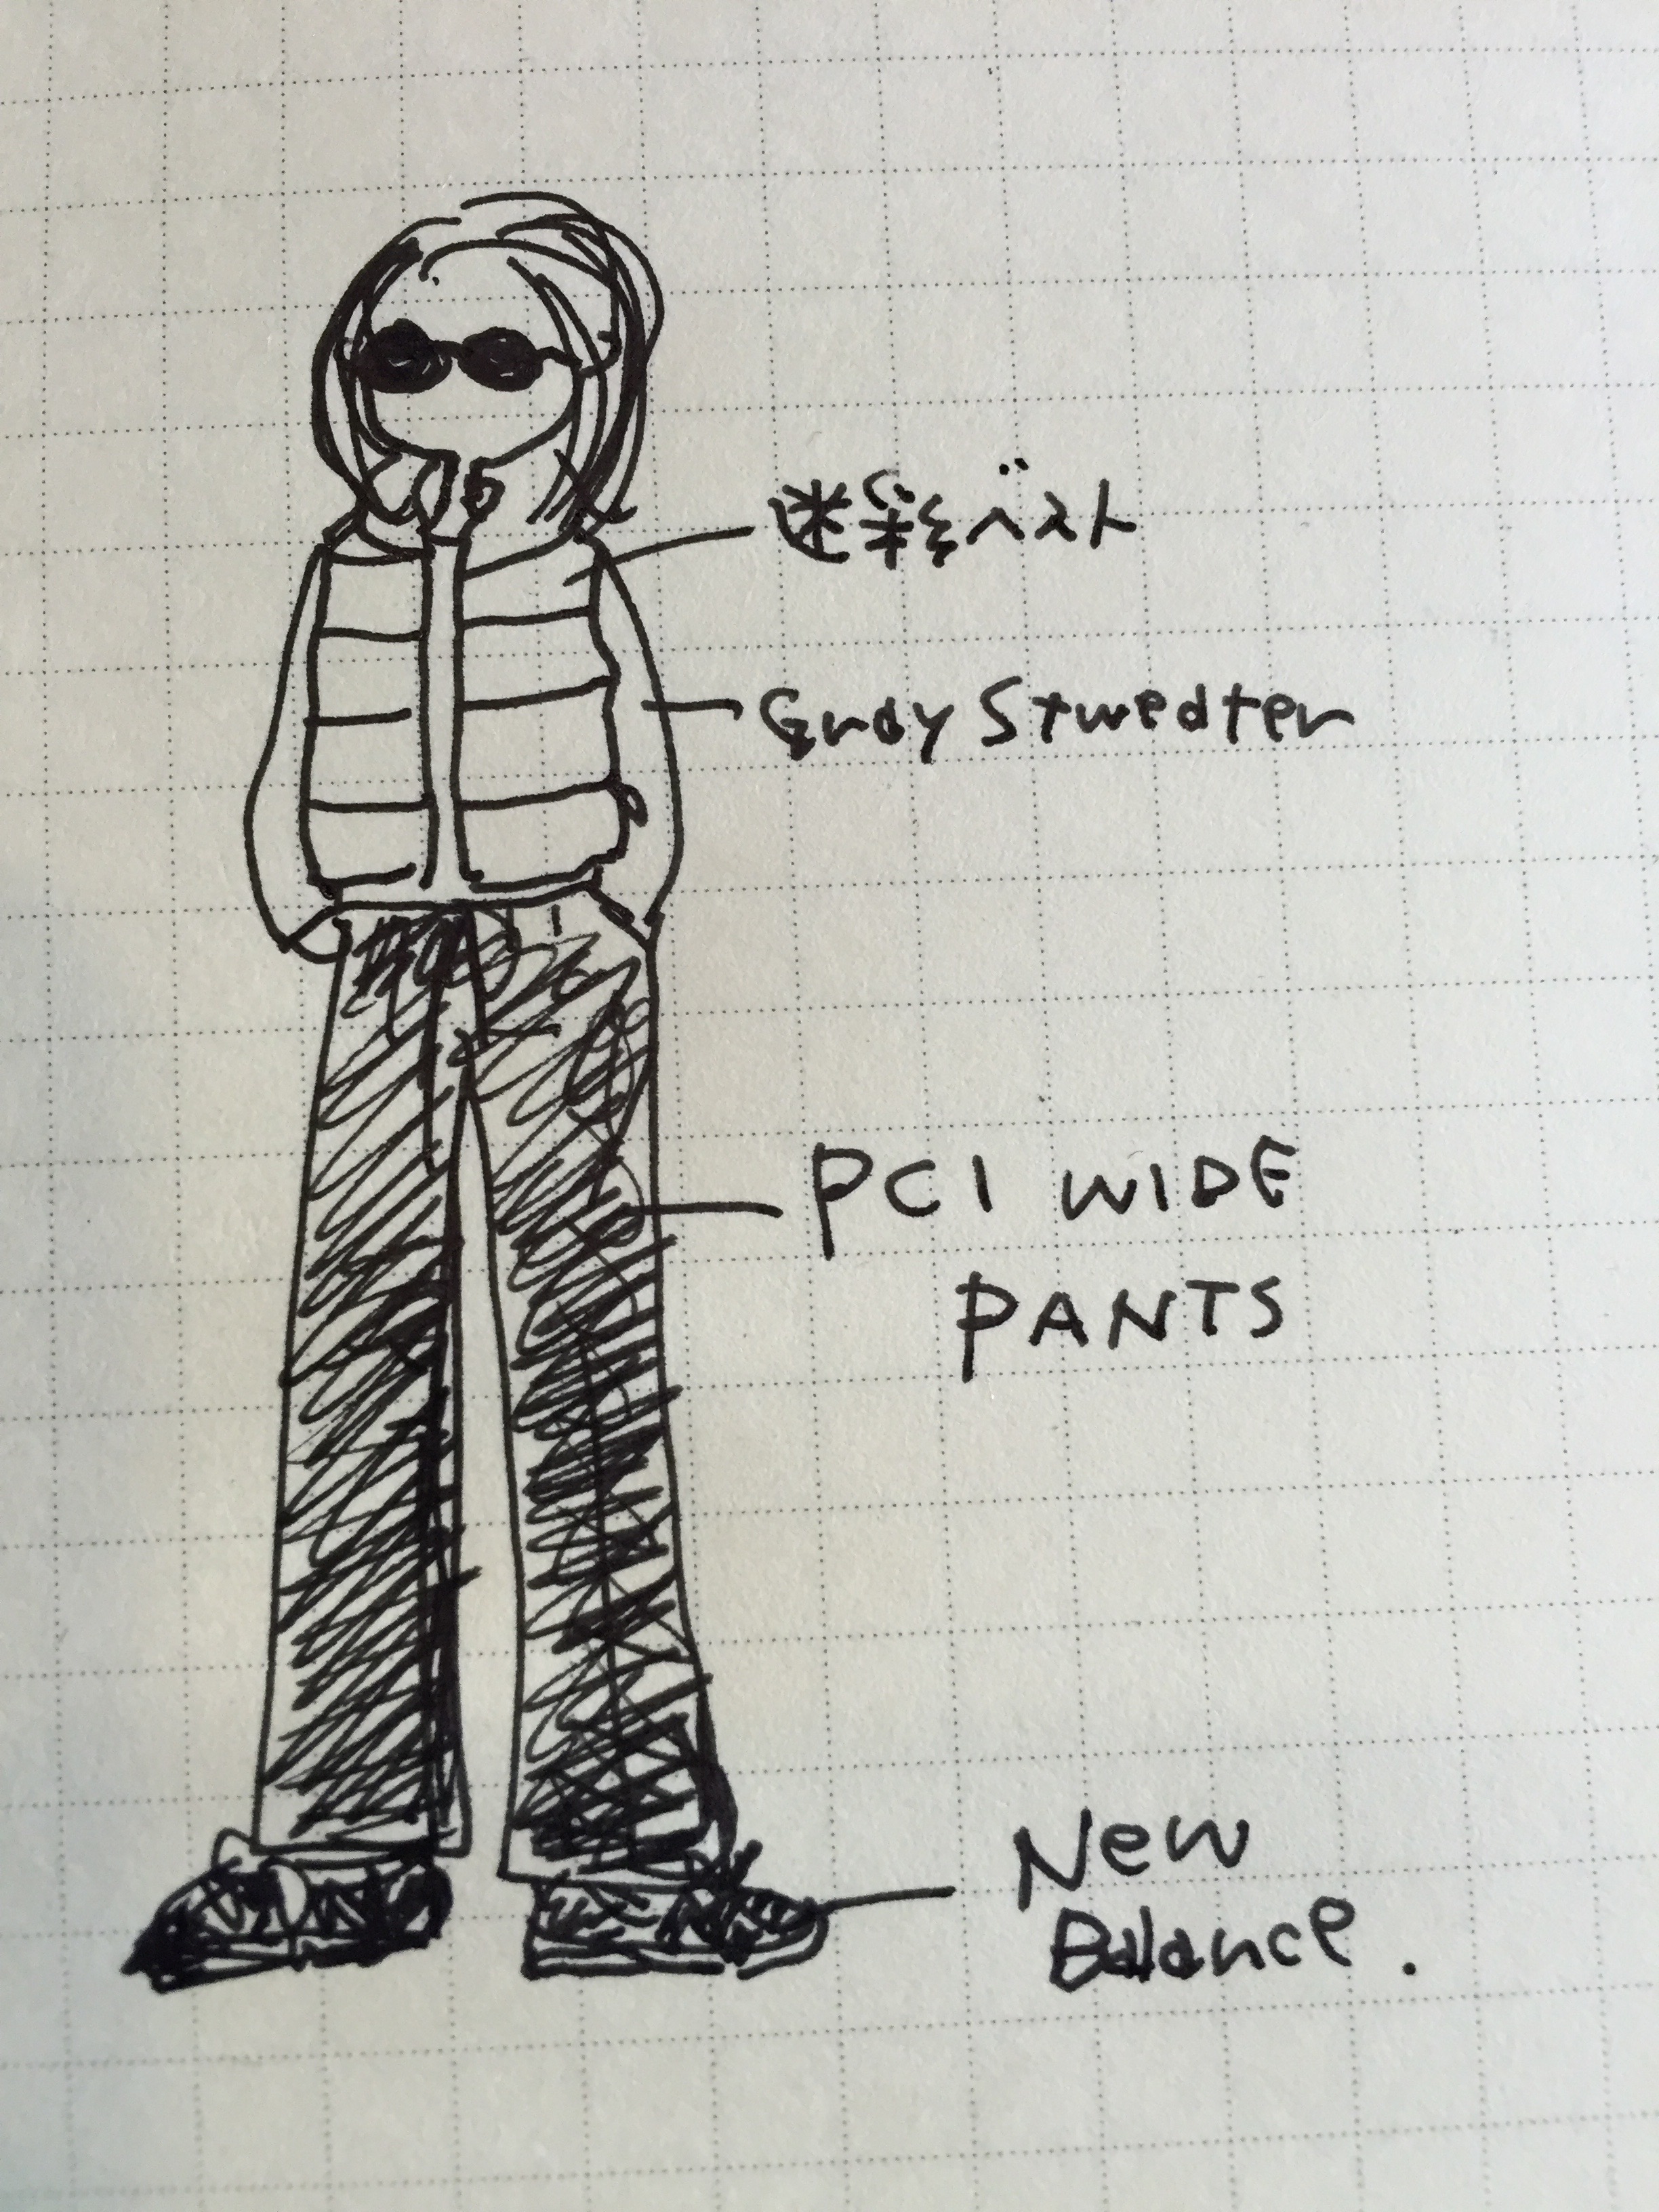 迷彩ベスト
Gray Stweater
PCI WIDE
PANTS
New
Balance.